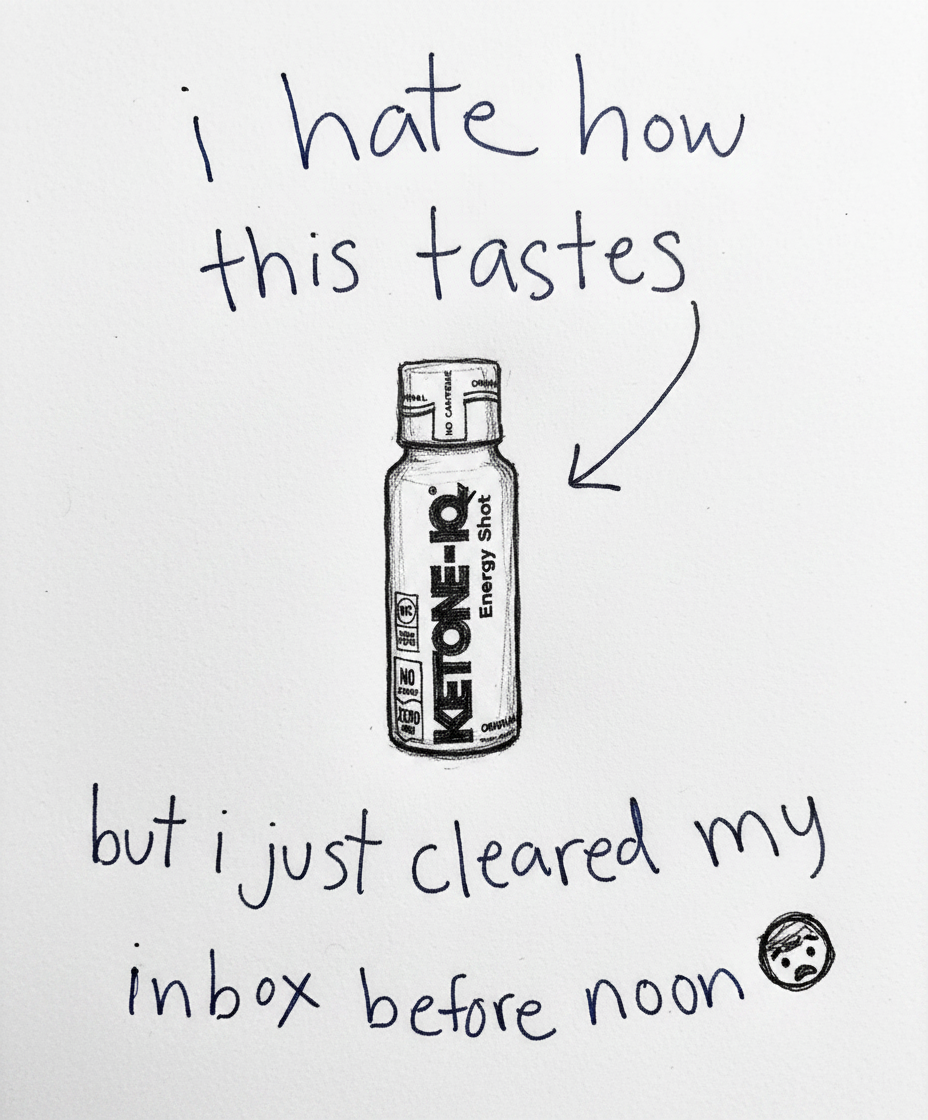 i hate how
this tastes
NO CAFFEINE
KETONE-IQ®
Energy Shot
NO
ORIGINAL
but i just cleared my
inbox before noon